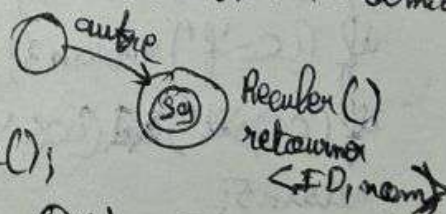 autre
Sg
Reculer ()
retourner
();
<ID, nom>